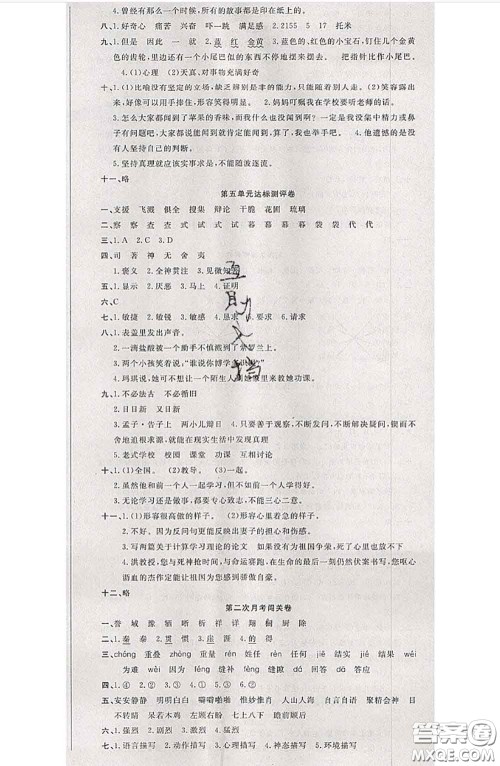 4.曾经有那么一个时候，所有的故事都是相同的。
八、1.好奇心 痛苦 兴奋 吓一跳 满足感 2.2155 5 17 托米
九、1.但是 因此 一 就 2.蓝 红 金黄 3.蓝色的、红色的小宝石，钉几个金黄
色的齿轮，里边还有一个小尾巴似的东西不停地摆来摆去。 把指针比作小尾巴。
4.(1)心理 (2)天真、对事物充满好奇
十、1.(1)比喻没有坚定的立场，缺乏辨别是非的能力，只能随着别人走。 (2)笑容露出
来，好像可以用手捧住，形容笑得明显。 2.妈妈叮嘱我在学校要听老师的话。
3.怎么大家都闻到了苹果的香味，而我什么也没闻到啊？一定是我没集中
精力，大家都说能闻到，那就肯定能闻到，算了，我也举手吧。 4.他遗憾的是没
有人坚持自己的判断。
5.坚持真理就应该实事求是，不能随波逐流。
十一、略
第五单元达标测评卷
一、支援 飞溅 俱全 搜集 辩论 干脆 花圃 琉璃
二、察 察 查 查 式 试 式 试 暮 幕 幕 暮 袋 袋 代 代
三、1.A 2.C 3.D
四、司 著 神 无 舍 夷
1.褒义 2.全神贯注 3.见微知著
五、1.显示 2.厌恶 3.马上 4.证明
六、C
七、1.敏捷 2.敏锐 3.敏感 4.恳求 5.要求 6.请求
八、1.表盖里发出声音。
2.一滴盐酸被一个助手不慎溅到了紫罗兰上。
3.两个小孩笑着说，“谁说你博学多识呢？”
4.玛琪说，她可不想让一个陌生人到她家里来教她功课。
九、1.不必法古 不必循旧
2.日日新 又日新
3.孟子·告子上 两小儿辩日 4.只要善于观察，不断发问，不断解决疑问，锲而不
舍地追根求源，就能在现实生活中发现真理
5.老式学校 校园 课堂 功课 互相讨论
十、1.(1)全国。 (2)教导。 (3)一起。
2.虽然他和前一个人一起学习，却不如前一个人学得好。
3.无论学习还是做事，都要专心致志，不能三心二意。
十一、1.(1)形容很高傲的样子。 (2)形容心里着急的样子。
2.不好。因为反问句更能反映出妻子的担心和伤感。
3.写两篇关于计算学习理论的论文 如果没有为祖国争荣，死了也不甘心
4.洪教授，您与死神抢时间，与命运赛跑，在生命的最后一刻仍然伏案书写，您呕心
沥血的杰作定能让祖国为您感到骄傲自豪。
十二、略
第二次月考闯关卷
一、誉 域 豫 牺 晰 析 祥 详 翔 伺 厨 除
二、1.秦 奏 2.虑 虎 3.贯 惯
三、1.(1)zhòng 董重 chóng 重量 rèn 姓任 任何 结实 jiē 结果 结束 jié 结果
为难 wéi 因为 wèi 缝隙 fèng 缝补 féng 缝隙 答应 dā 回答 dá 答应
四、1.④ ② ③ ① 2.① ③ ②
五、安安静静 明明白白 噼噼啪啪 惟妙惟肖 人山人海 自言自语 聚精会神 目
不转睛 呆若木鸡 左顾右盼 七上八下 瞻前顾后
六、1.强烈 2.激烈 3.猛烈
七、1.语言描写 2.动作描写 3.心理描写 4.神态描写 5.环境描写
互助文档
答案圈
MXQE.COM